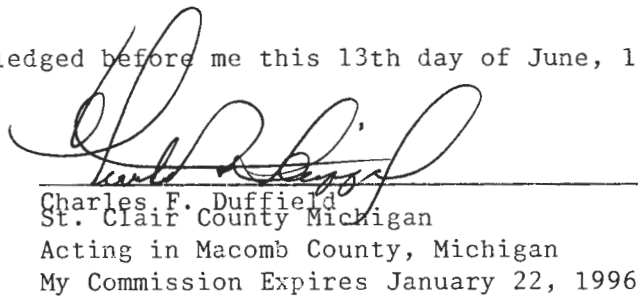 ledged before me this 13th day of June, 1
Charles F. Duffield
St. Clair County Michigan
Acting in Macomb County, Michigan
My Commission Expires January 22, 1996